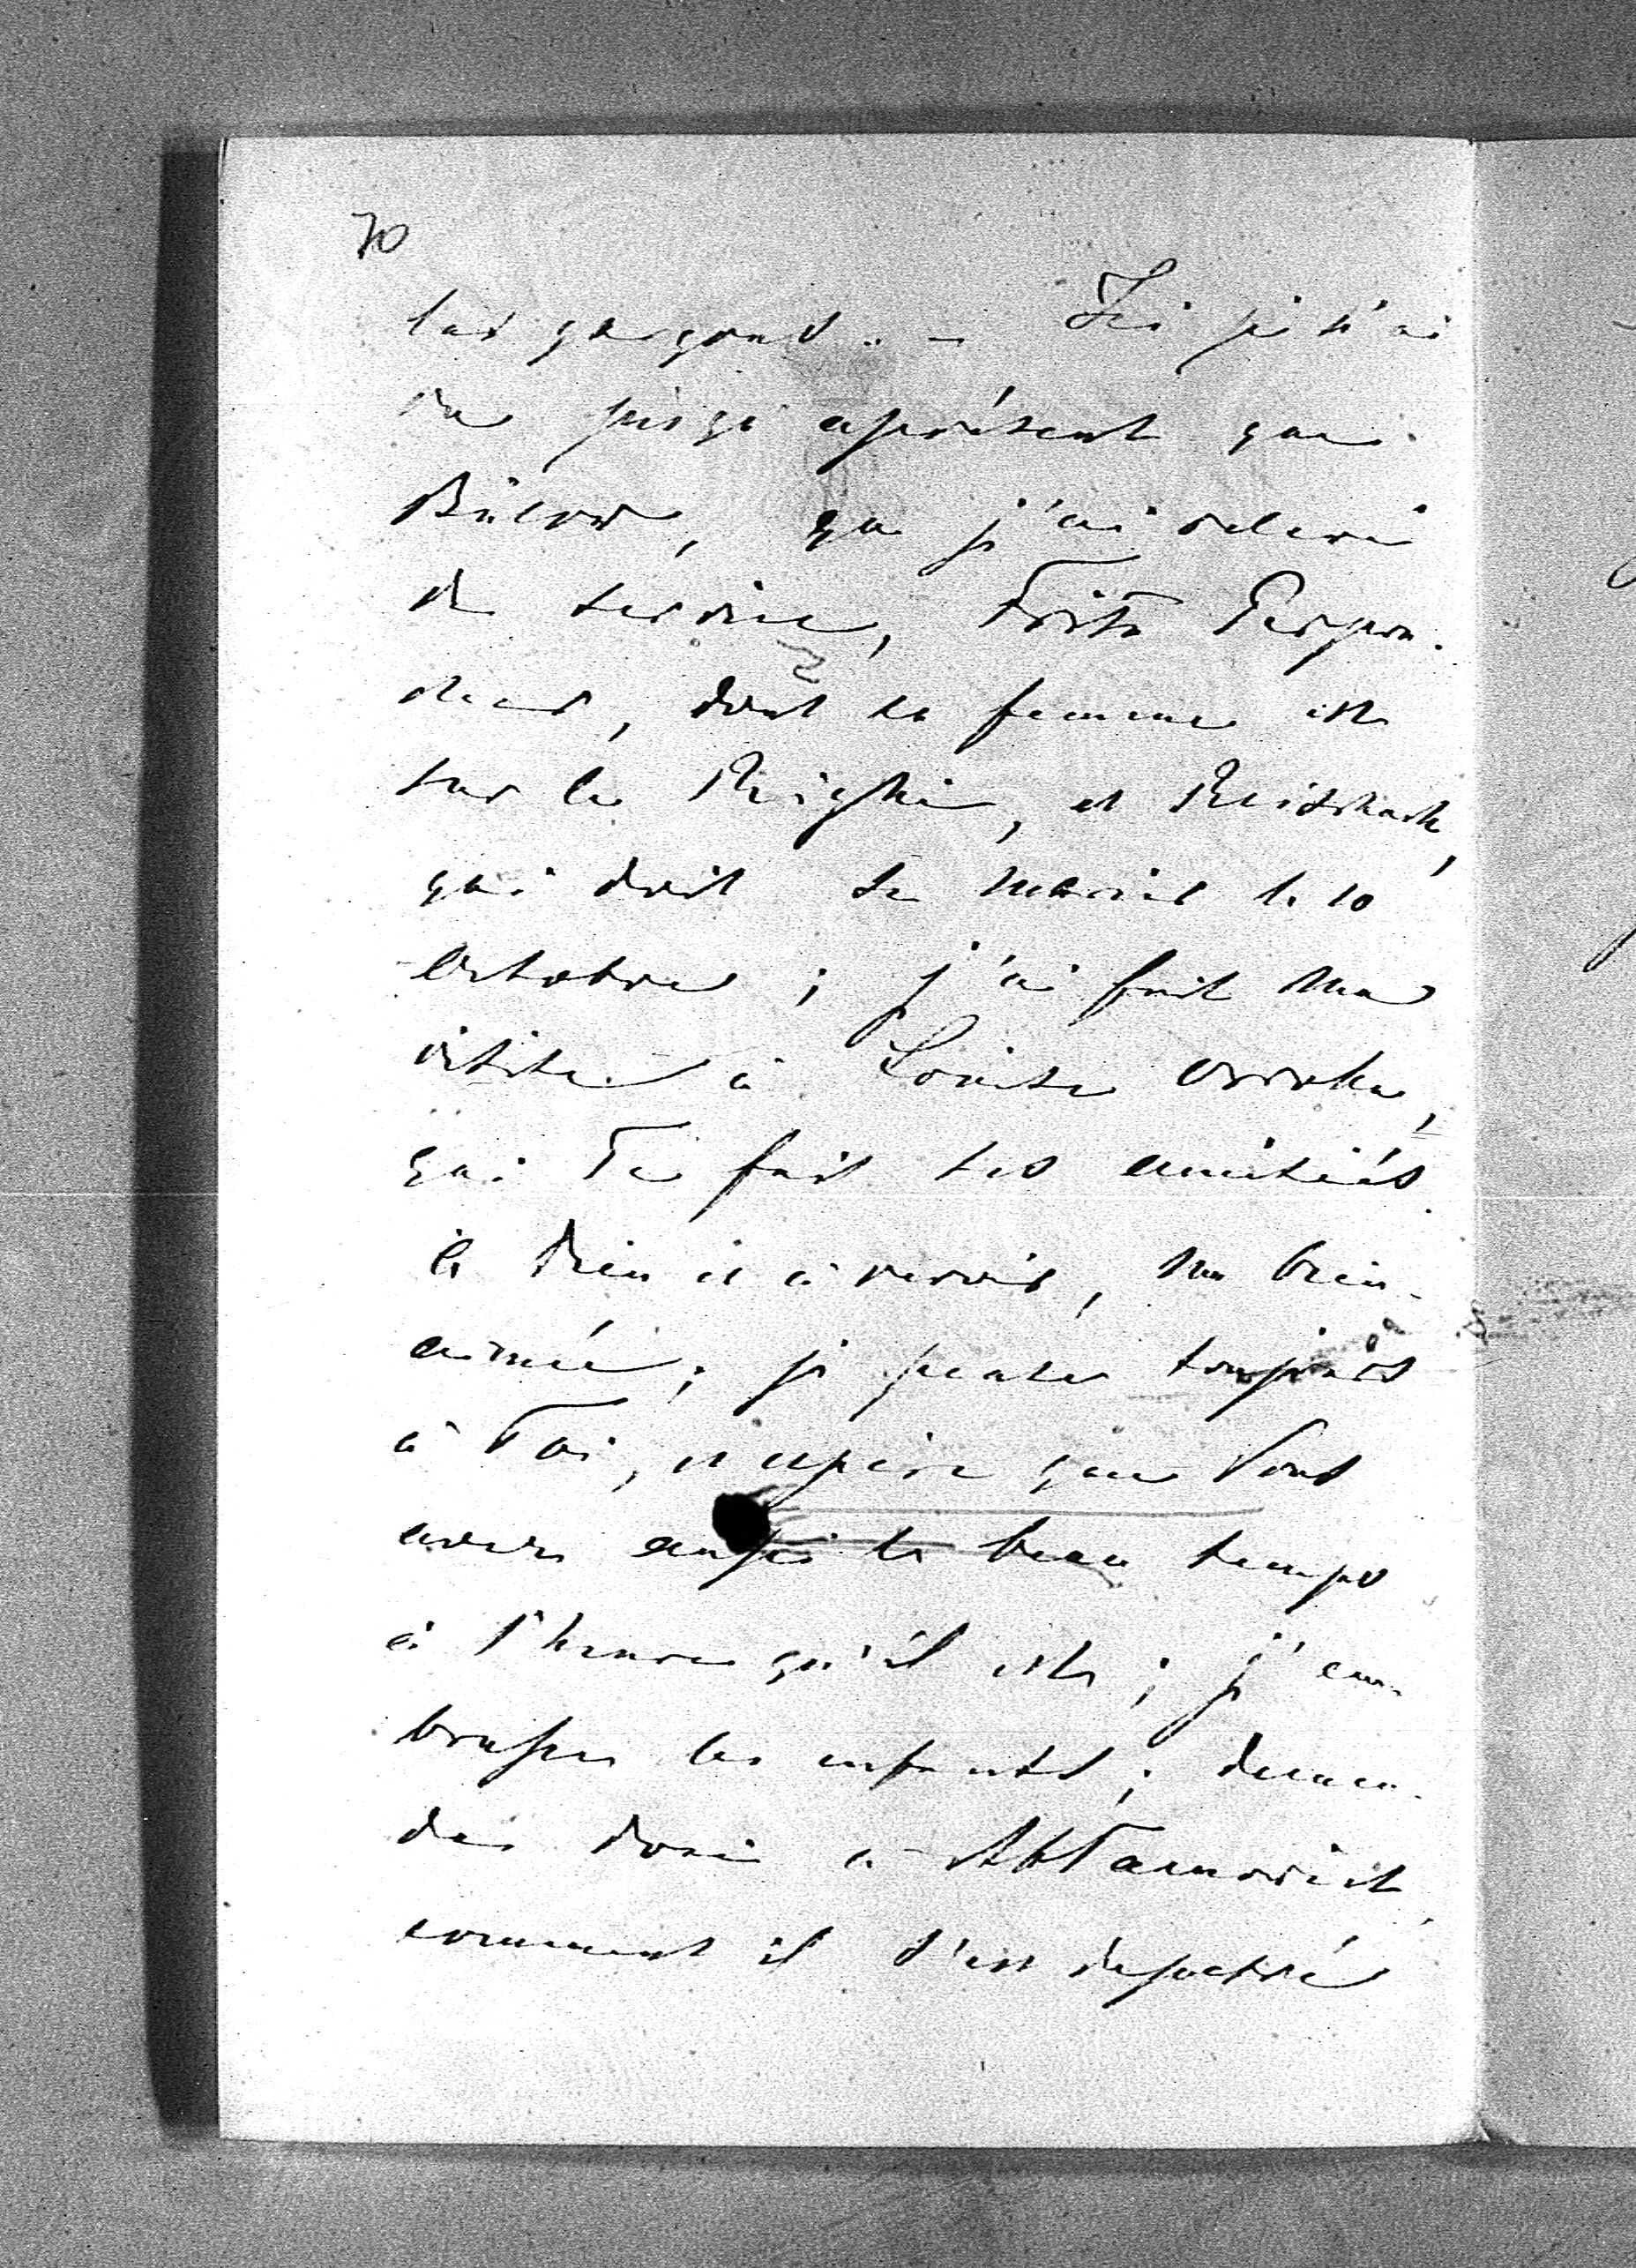 70
Ici je n'ai
vu jusqu'aprésent que
Bülow, que j'ai relevé
de service, Fritz Perpon-
cher, dont la femme est
sur le Righi, et Reischach,
qui doit se marier le 10
Octobre; j'ai fait ma
visite à Louise
qui Te fait ses amitiés.
à Dieu et à revoir, ma bien-
aimée; je pense toujours
à Toi, et espère que Vous
avez aussi le beau temps
à l'heure qu'il est; j'em-
brasse les enfants; deman-
des donc à
comment il s'est depetré